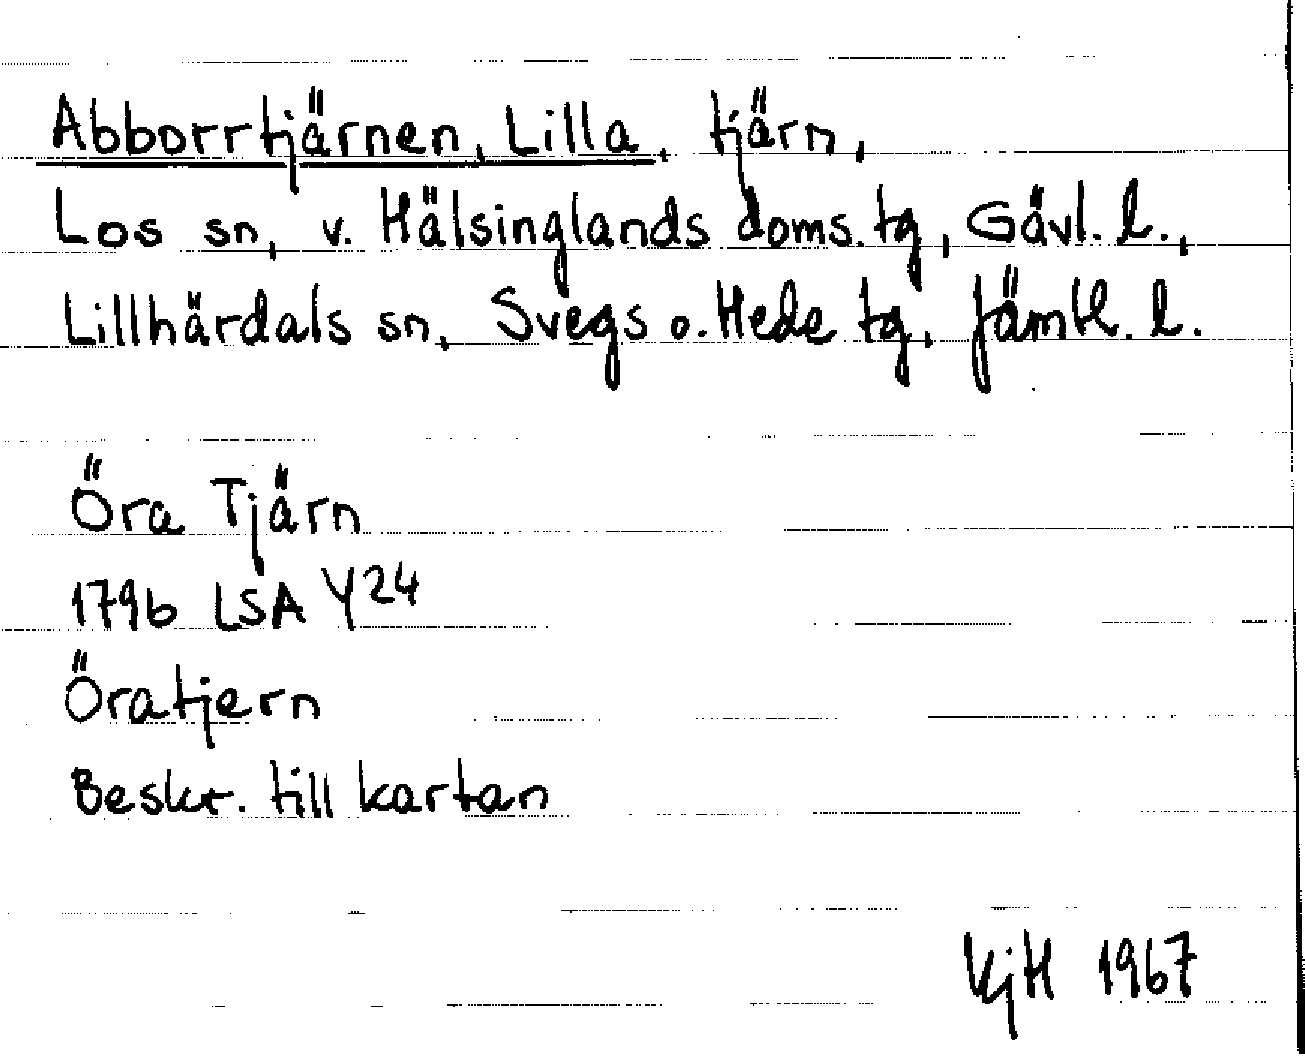 Abborrtjärnen, Lilla, tjärn,
Los sn, v. Hälsinglands doms. tg, Gävl. l.,
Lillhärdals sn, Svegs o. Hede tg, Jämtl. l.
Öra Tjärn
1796 LSA Y24
Öratjern
Beskr. till kartan
KjH 1967